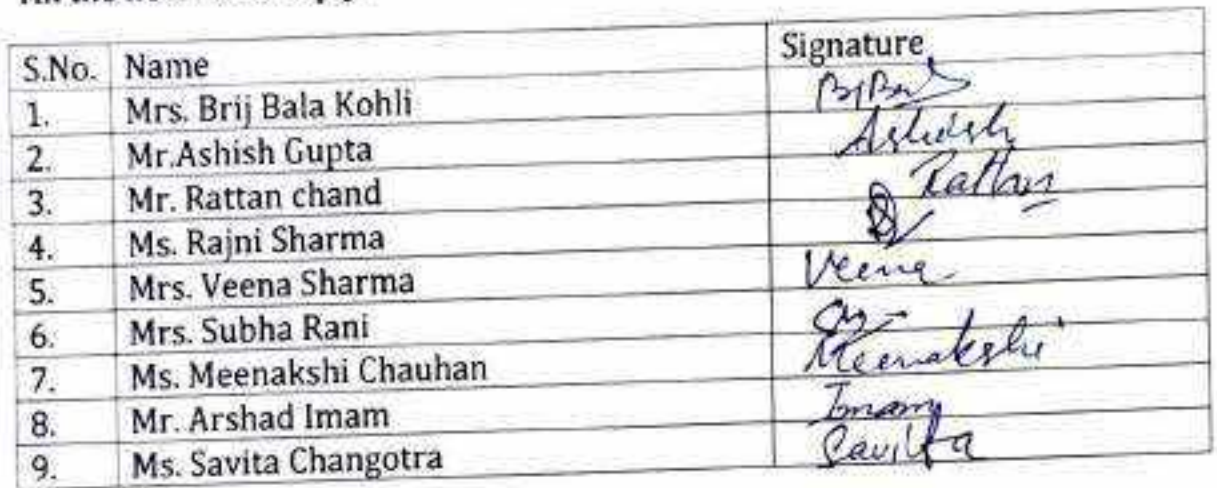 S.No. Name Signature
1. Mrs. Brij Bala Kohli
2. Mr.Ashish Gupta Ashish
3. Mr. Rattan chand Rattan
4. Ms. Rajni Sharma
5. Mrs. Veena Sharma Veena
6. Mrs. Subha Rani
7. Ms. Meenakshi Chauhan Meenakshi
8. Mr. Arshad Imam Imam
9. Ms. Savita Changotra Savita